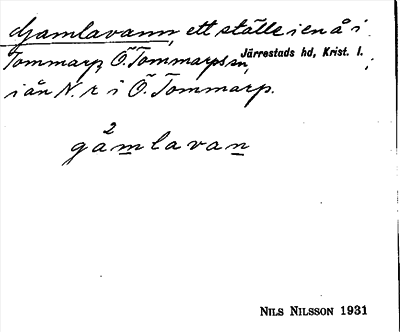 Gamlavann, ett ställe i en å i
Tommarp, Ö. Tommarps sn, Järrestads hd, Krist. l.
i ån N. r i Ö. Tommarp.
2
gåmlavan
NILS NILSSON 1931